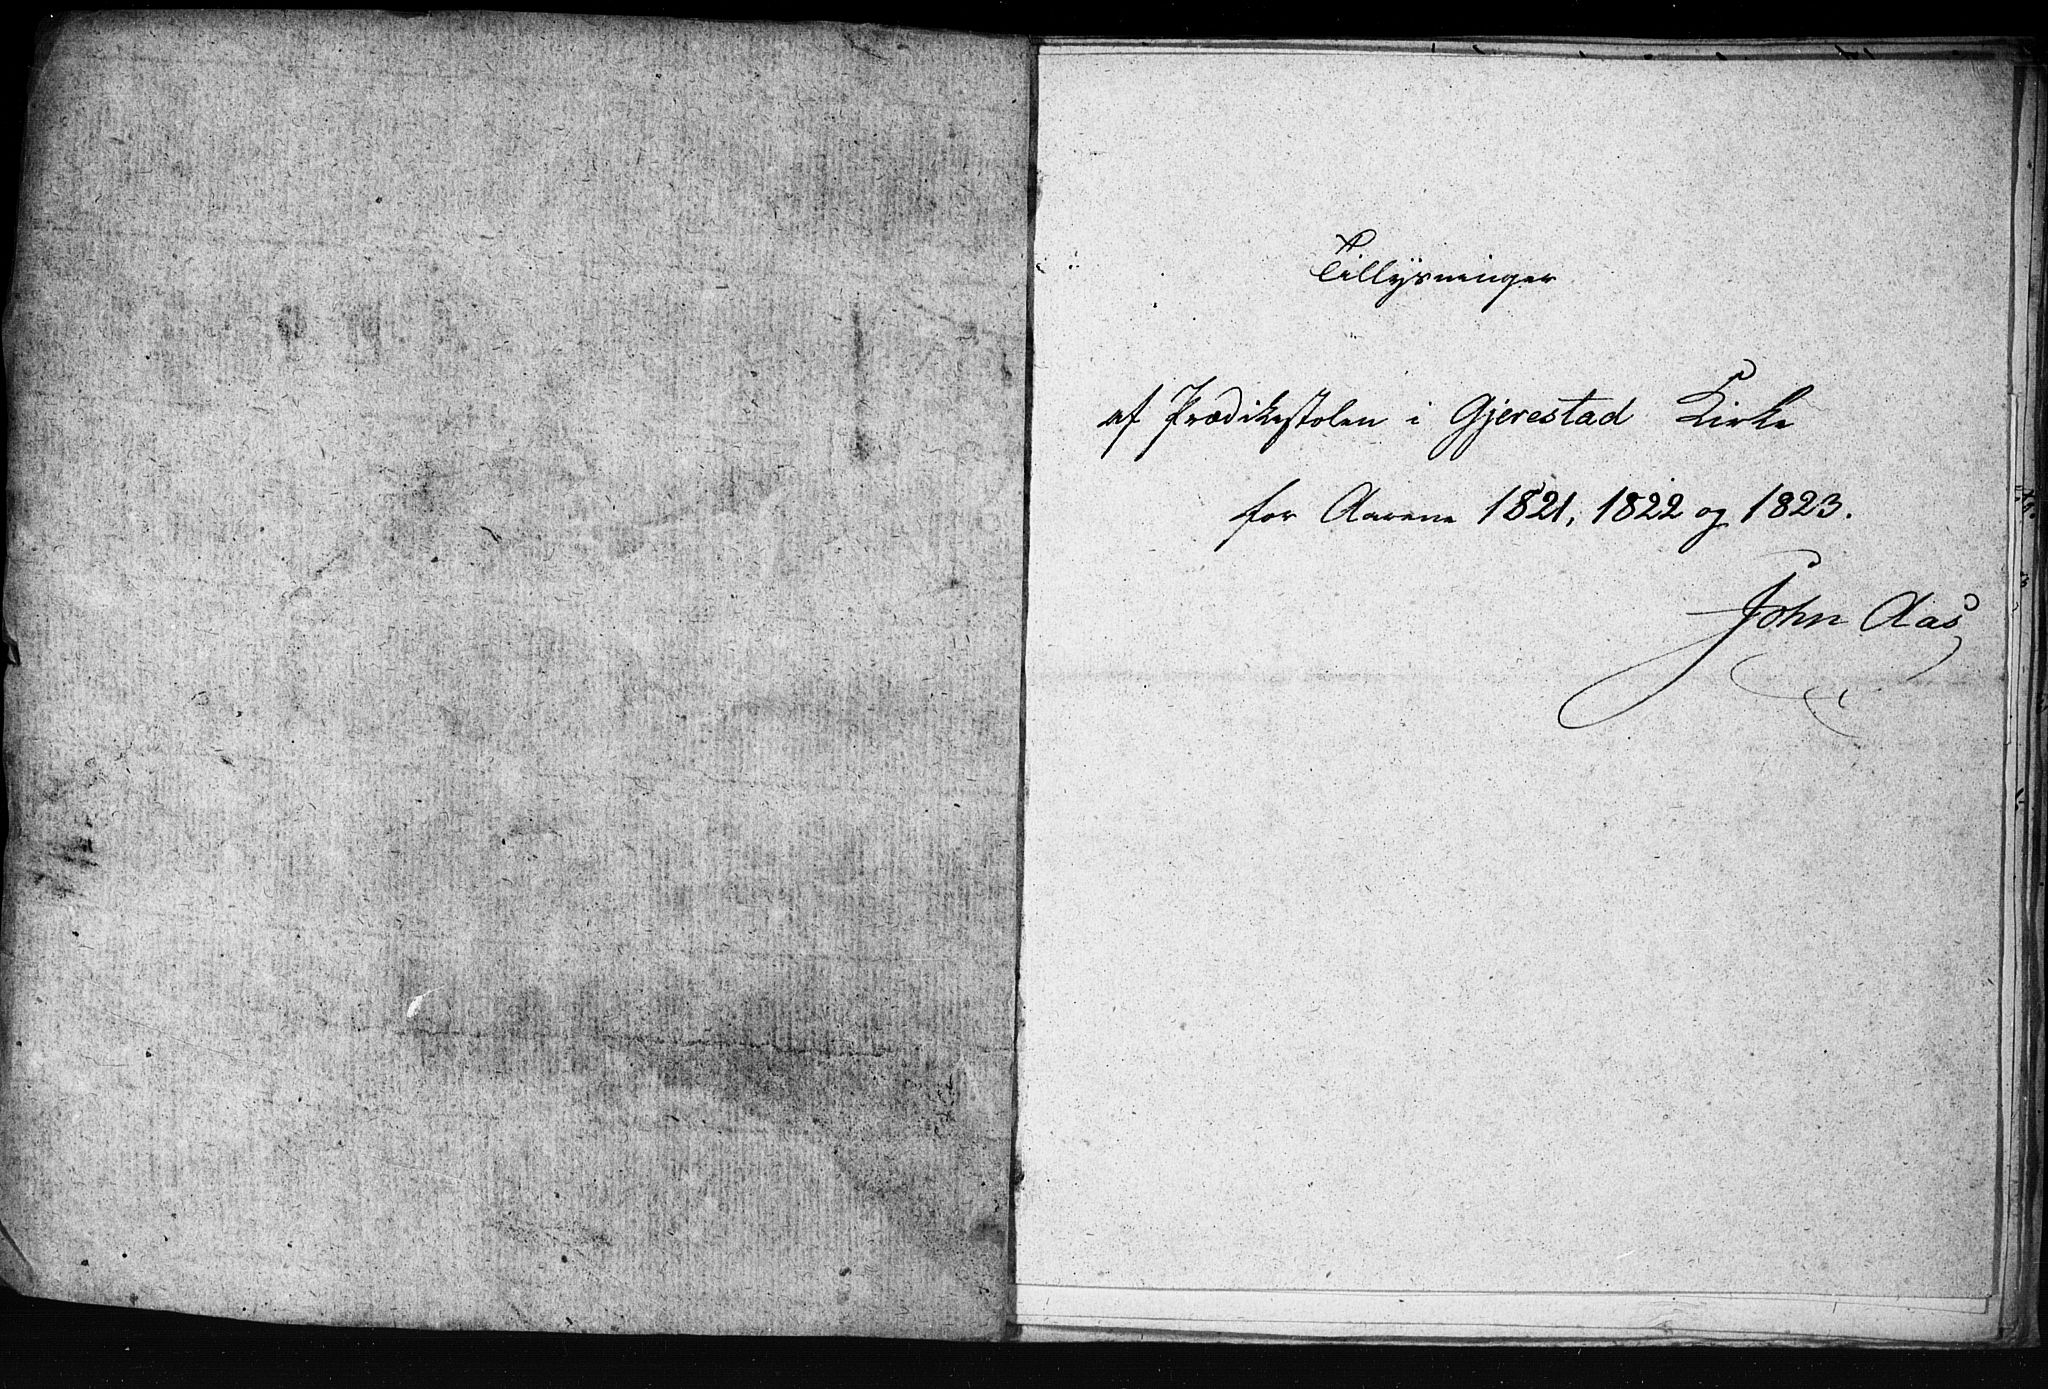 Tillysninger
af Prædikestolen i Gjerestad Kirke
for Aarene 1821, 1822 og 1823.
John Aas